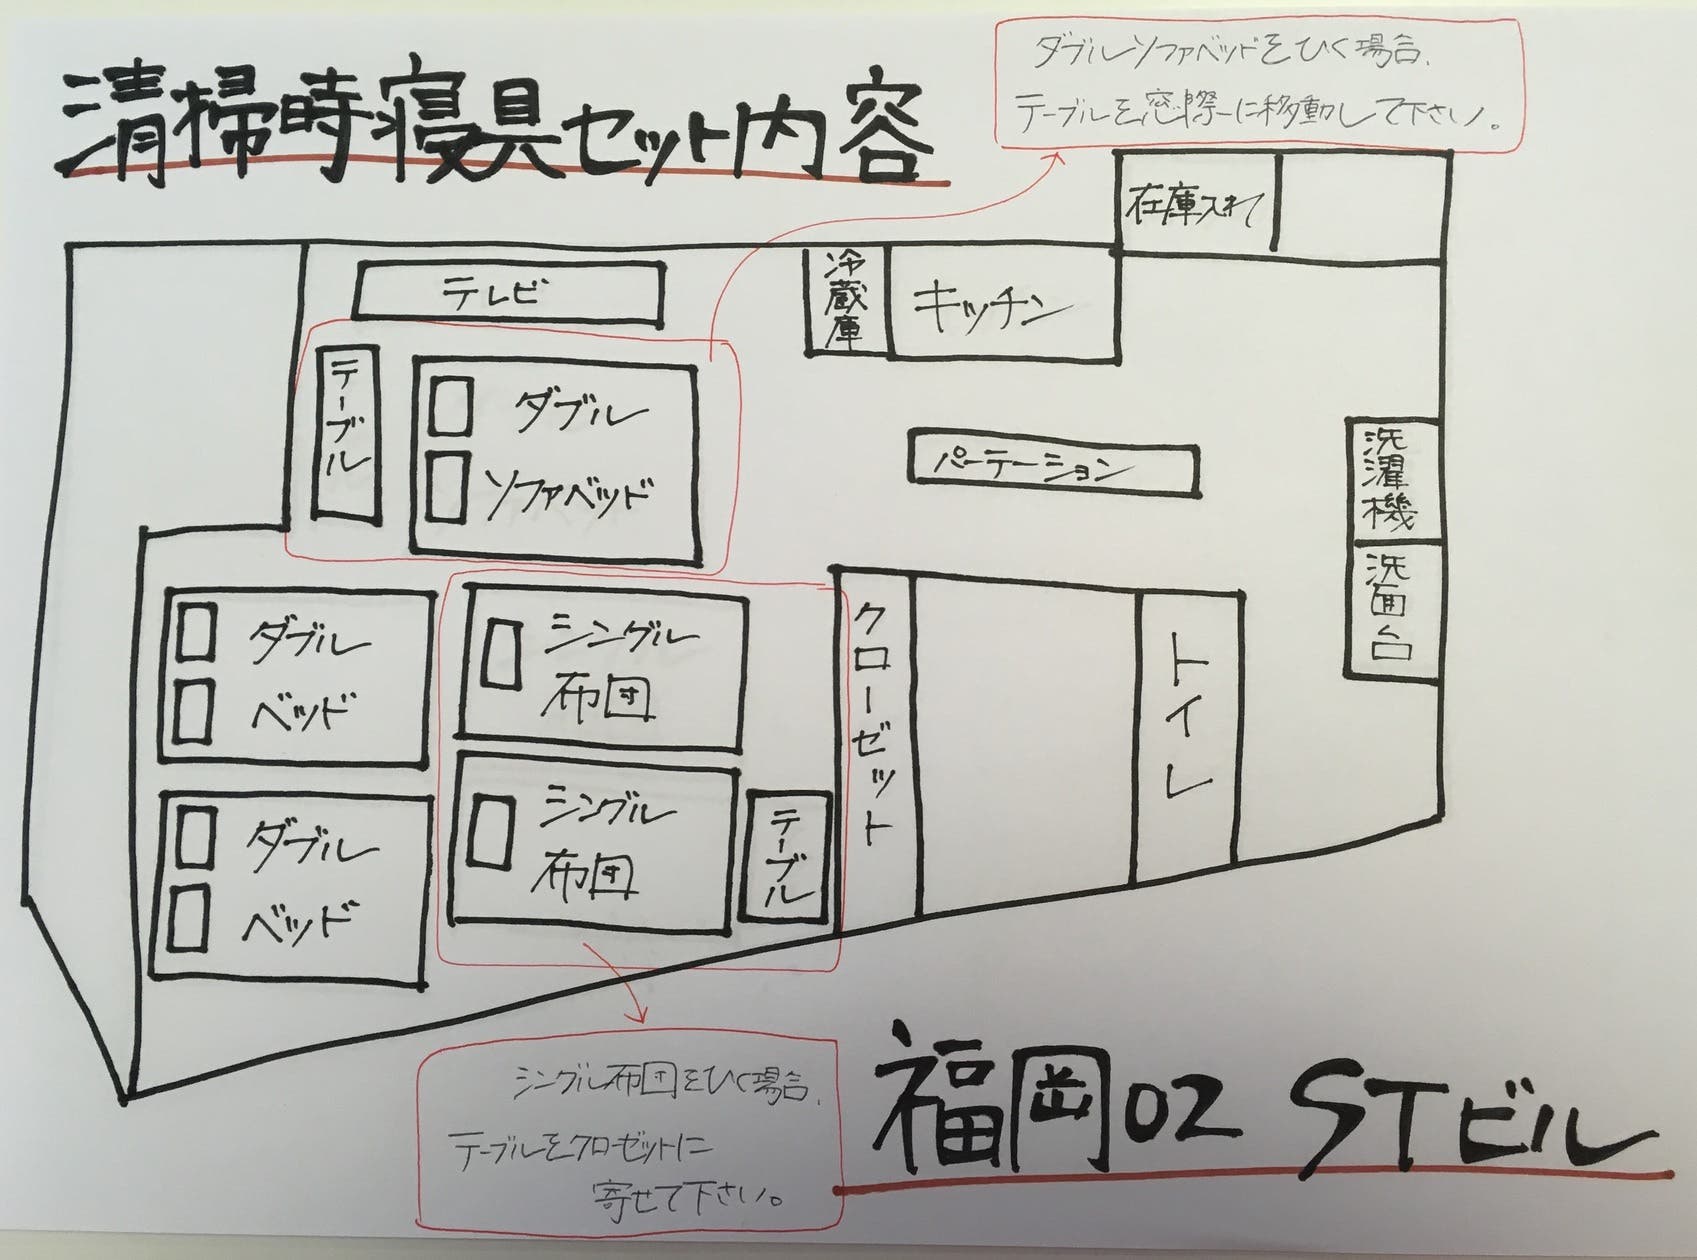 清掃時寝具セット内容
ダブルソファベッドをひく場合、
テーブルを窓際に移動して下さい。
在庫入れ
テレビ
冷蔵庫
キッチン
テーブル
ダブル
ソファベッド
パーテーション
洗濯機
洗面台
ダブル
ベッド
シングル
布団
クローゼット
トイレ
ダブル
ベッド
シングル
布団
テーブル
シングル布団をひく場合、
テーブルをクローゼットに
寄せて下さい。
福岡02 STビル